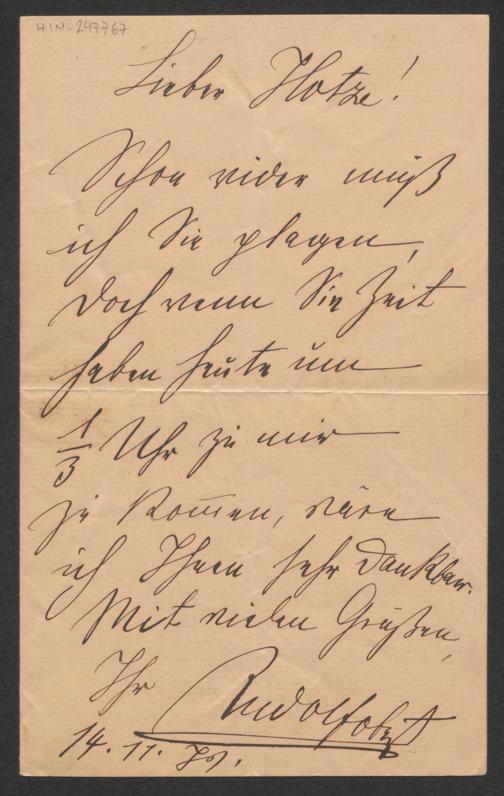 HIN-247767
Lieber Hotze!
Schon wider muß
ich Sie plagen,
doch wenn Sie Zeit
haben heute um
1/3 Uhr zu mir
zu kommen, wäre
ich Ihnen sehr dankbar.
Mit vielen Grüßen,
Ihr
14. 11.